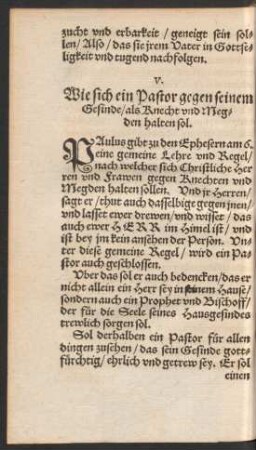 zucht vnd erbarkeit / geneigt sein sol-
len / Also / das sie jrem Vater in Gottse-
ligkeit vnd tugend nachfolgen.
V.
Wie sich ein Pastor gegen seinem
Gesinde / als Knecht vnd Meg-
den halten sol.
PAulus gibt zu den Ephesern am 6.
eine gemeine Lehre vnd Regel /
nach welcher sich Christliche Her
ren vnd Frawen gegen Knechten vnd
Megden halten sollen. Vnd jr Herren /
sagt er / thut auch dasselbige gegen jnen /
vnd lasset ewer drewen / vnd wisset / das
auch ewer HERR im Himel ist / vnd
ist bey jm kein ansehen der Person. Vn-
ter diese gemeine Regel / wird ein Pa-
stor auch geschlossen.
Vber das sol er auch bedencken / das er
nicht allein ein Herr sey in seinem Hause /
sondern auch ein Prophet vnd Bischoff /
der für die Seele seines Hausgesindes
trewlich sorgen sol.
Sol derhalben ein Pastor für allen
dingen zusehen / das sein Gesinde gott-
fürchtig / ehrlich vnd getrew sey. Er sol
einen